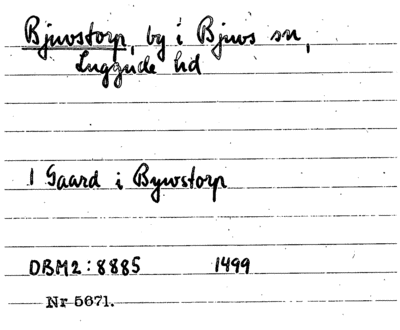 Bjuvstorp, by i Bjuvs sn,
Luggude hd
1 Gaard i Bywstorp
DRM2:8885 1499
Nr 5671.